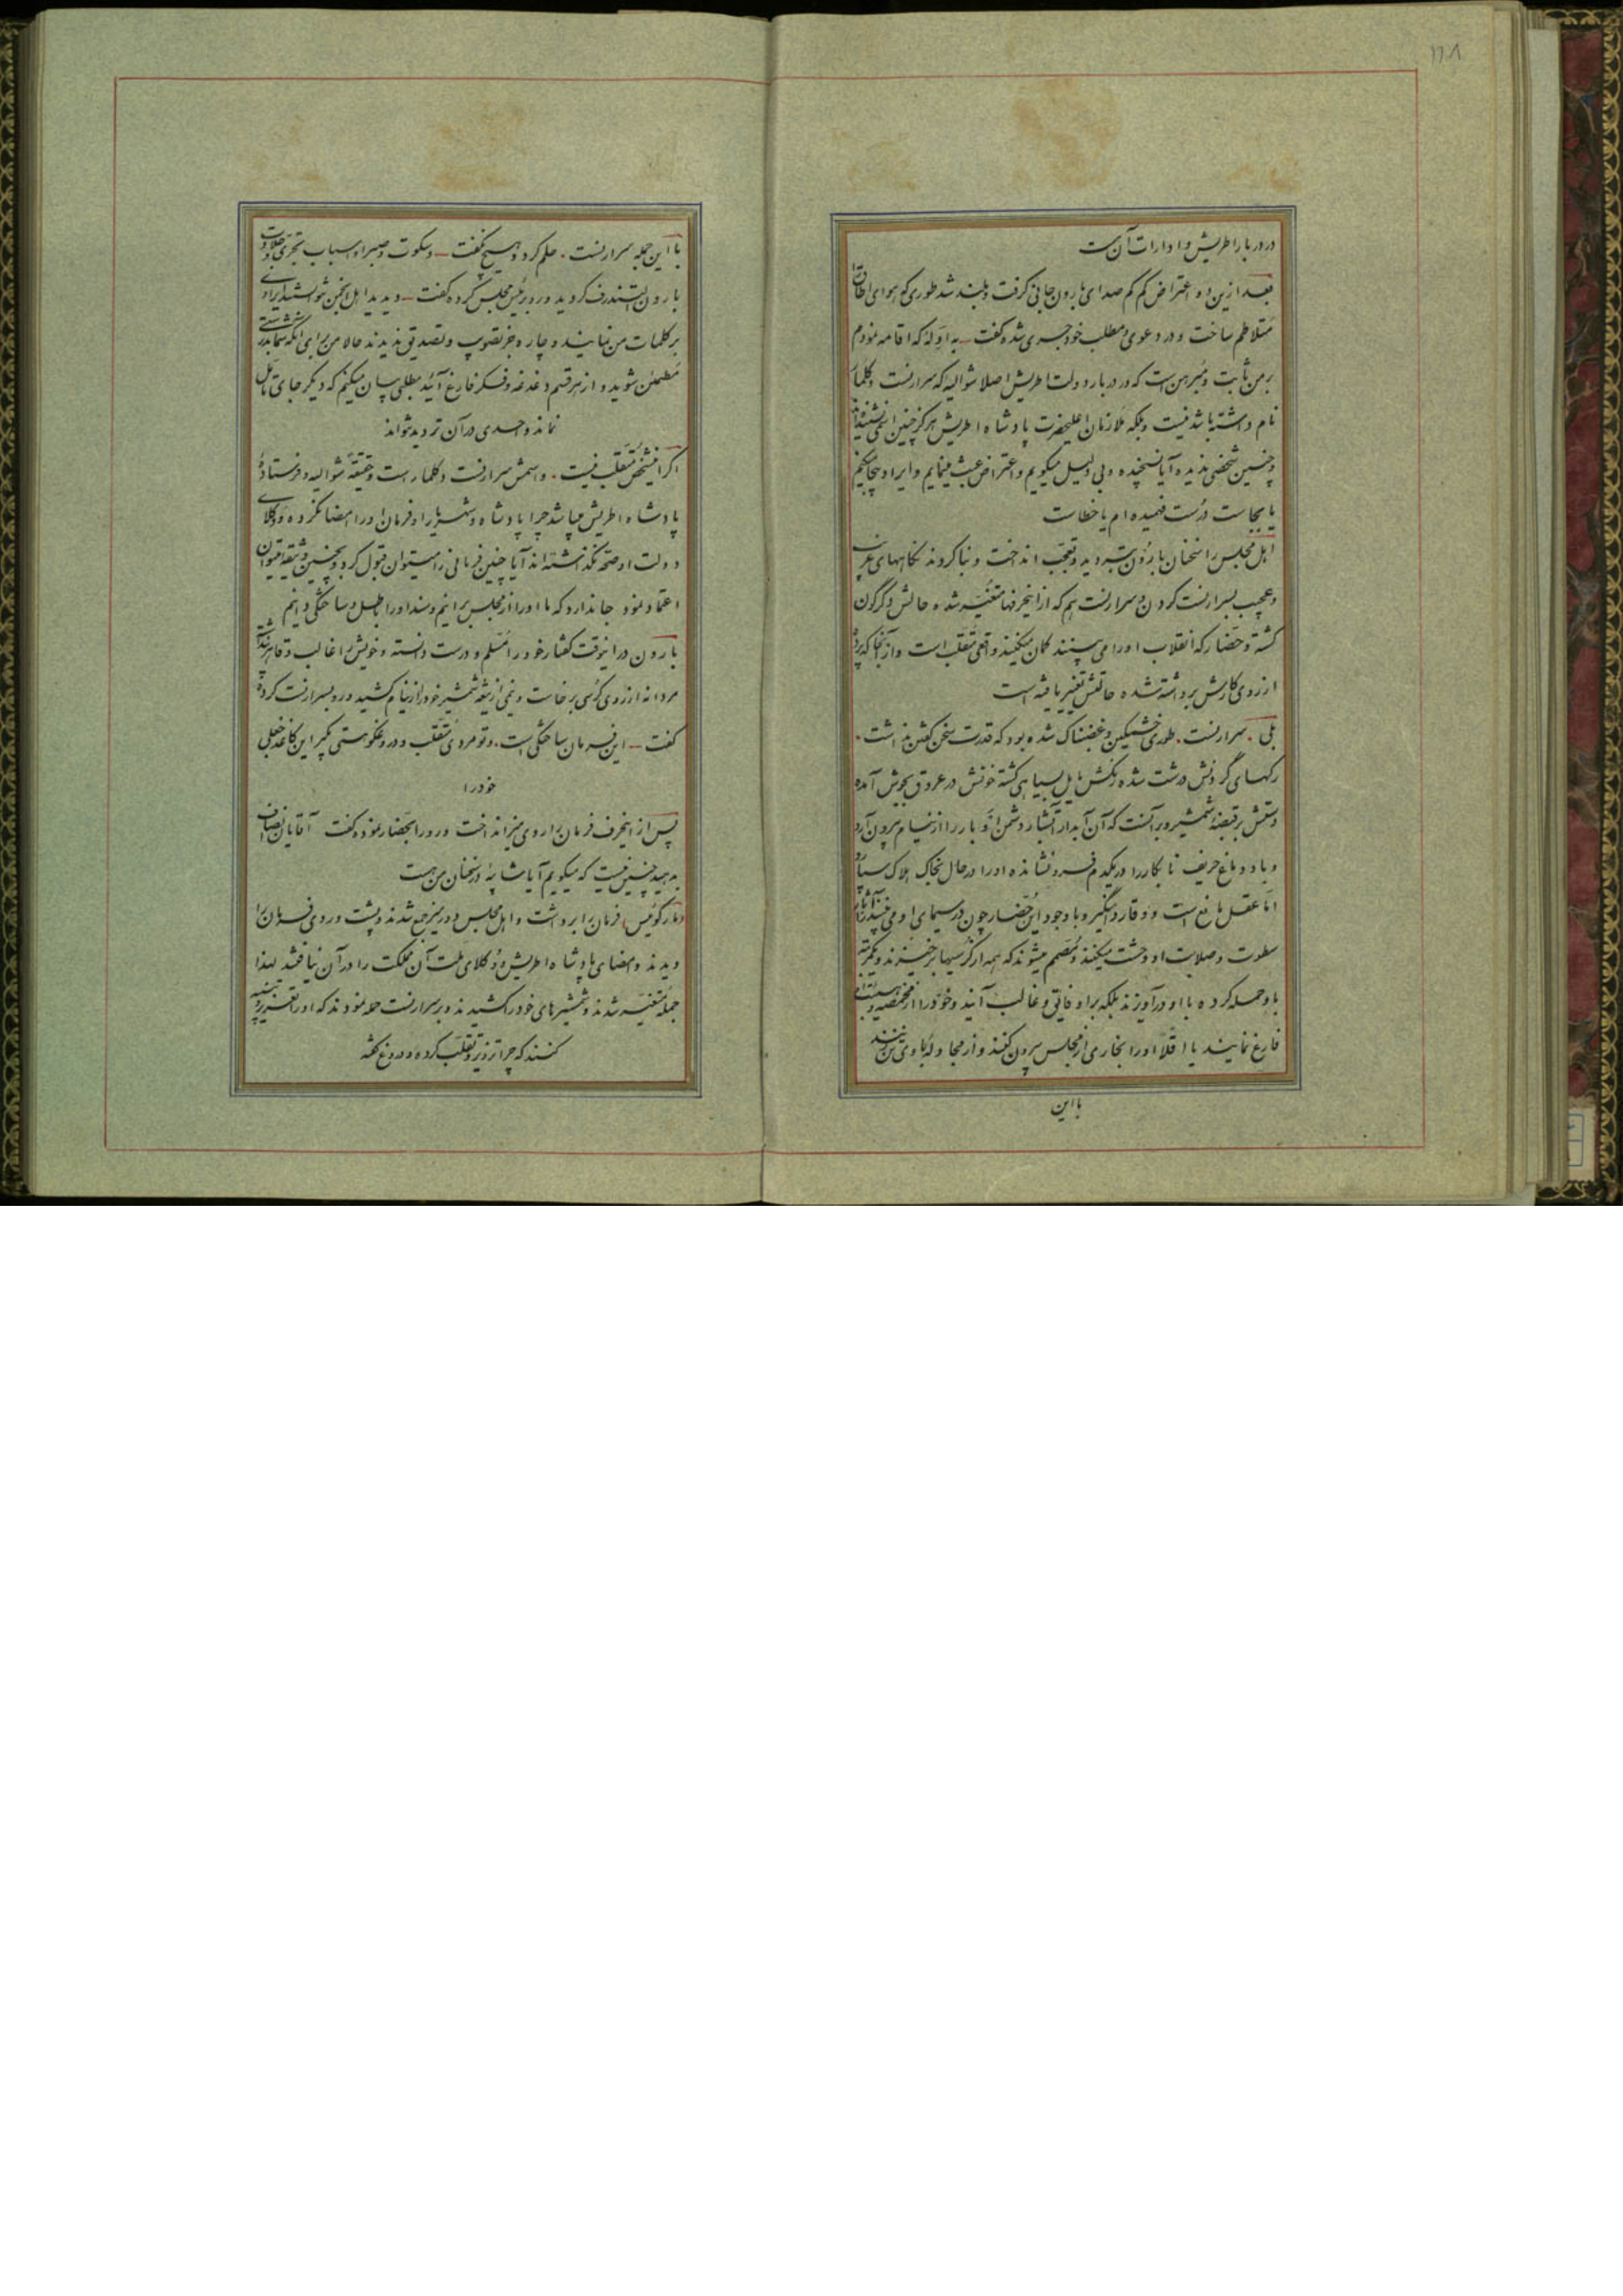 ۱۱۸
در دربار اطریش و ادارات آن است
بعد ازین دو اعتراض کم کم صدای بارون جانی گرفت و بلند شد طوری که هوای اطاق را
متلاطم ساخت و در دعوی مطلب خود جری شده گفت ـ به ادله که اقامه نمودم
بر من ثابت و مبرهن است که در دربار دولت اطریش اصلا شوالیه که سرارنست دکلمار
نام داشته باشد نیست و بلکه ملازمان اعلیحضرت پادشاه اطریش هرگز چنین اسمی نشنیده‌اند
و چنین شخصی ندیده آیا نسنجیده و بی دلیل میگویم و اعتراض عبث مینمایم و ایراد بیجا میکنم
یا بجاست درست فهمیده ام یا خطاست
اهل مجلس را سخنان بارون بتردید و تعجب انداخت و بنا کردند نگاههای غریب
و عجیب بسرارنست کردن و سرارنست هم که ازاینحرفها متغیر شده حالش دگرگون
گشته و حضار که انقلاب اورا می بینند گمان میکنند واقعی متقلب است و از آنجا که پرده
از روی کارش برداشته شده حالتش تغییر یافته است
بلی . سرارنست . طوری خشمگین و غضبناک شده بود که قدرت سخن گفتن نداشت .
رگهای گردنش درشت شده رنگش مایل بسیاهی گشته خونش در عروق بجوش آمده
دستش بر قبضه شمشیر و بر آنست که آن آبدار آتشبار دشمن او بار را از نیام بیرون آرد
و باد دماغ حریف نابکار را در یکدم فرو نشانده اورا در حال بخاک هلاک سپارد
اما عقل مانع است و وقار دامنگیر و با وجود این حضار چون در سیمای او می بینند آثار
سطوت و صلابت او وحشت میکنند و مصمم میشوند که همه از کرسیها برخیزند و یکمرتبه
باو حمله کرده با او درآویزند بلکه براو فایق و غالب آیند و خود را از مخمصه و
فارغ نمایند یا اقلا اورا بخاری از مجلس بیرون کنند و از مجادله با وی تن زنند
با این
با این جمله سرارنست . حلم کرد و هیچ نگفت ـ و سکوت و صبر او اسباب تجری و جلادت
بارون لستندرف گردید و رو برئیس مجلس کرده گفت ـ دیدید اهل انجمن نتوانستند ایرادی
بر کلمات من نمایند و چاره جز تصویب و تصدیق ندیدند حالا من برای آنکه شما بدرستی
مطمئن شوید و از هر قسم دغدغه و فکر فارغ آئید مطلبی بیان میکنم که دیگر جای تامل
نماند و احدی در آن تردید نتواند
اگر اینشخص متقلب نیست . و اسمش سرارنست دکلمار است و حقیقة شوالیه و فرستاده
پادشاه اطریش میباشد چرا پادشاه و شهریار او فرمان اورا امضا نکرده و وکلای
دولت او صحه نگذاشته‌اند آیا چنین فرمانی را میتوان قبول کرد و بچنین وثیقه میتوان
اعتماد نمود جا ندارد که ما اورا از مجلس برانیم و سند اورا باطل و ساختگی دانیم
بارون دراینوقت گفتار خود را مسلم و درست دانسته و خویش را غالب و قاهر پنداشته
مردانه از روی کرسی برخاست و نیمی از تیغه شمشیر خود را از نیام کشید و رو بسرارنست کرده
گفت ـ این فرمان ساختگی است . و تو مردی متقلب و دروغگو هستی بگیر این کاغذ جعلی
خود را
پس از اینحرف فرمان را روی میز انداخت و رو را بحضار نموده گفت آقایان انصاف
بدهید چنین نیست که میگویم آیا شائبه در سخنان من هست
(مارکوئیس) فرمان را برداشت و اهل مجلس دور میز جمع شدند و پشت و روی فرمان را
دیدند و امضای پادشاه اطریش و وکلای ملت آن مملکت را در آن نیافتند لهذا
جملة متغیر شدند و شمشیرهای خود را کشیدند و بر سرارنست حمله نمودند که اورا تعزیر و تنبیه
کنند که چرا تزویر و تقلب کرده و دروغ گفته